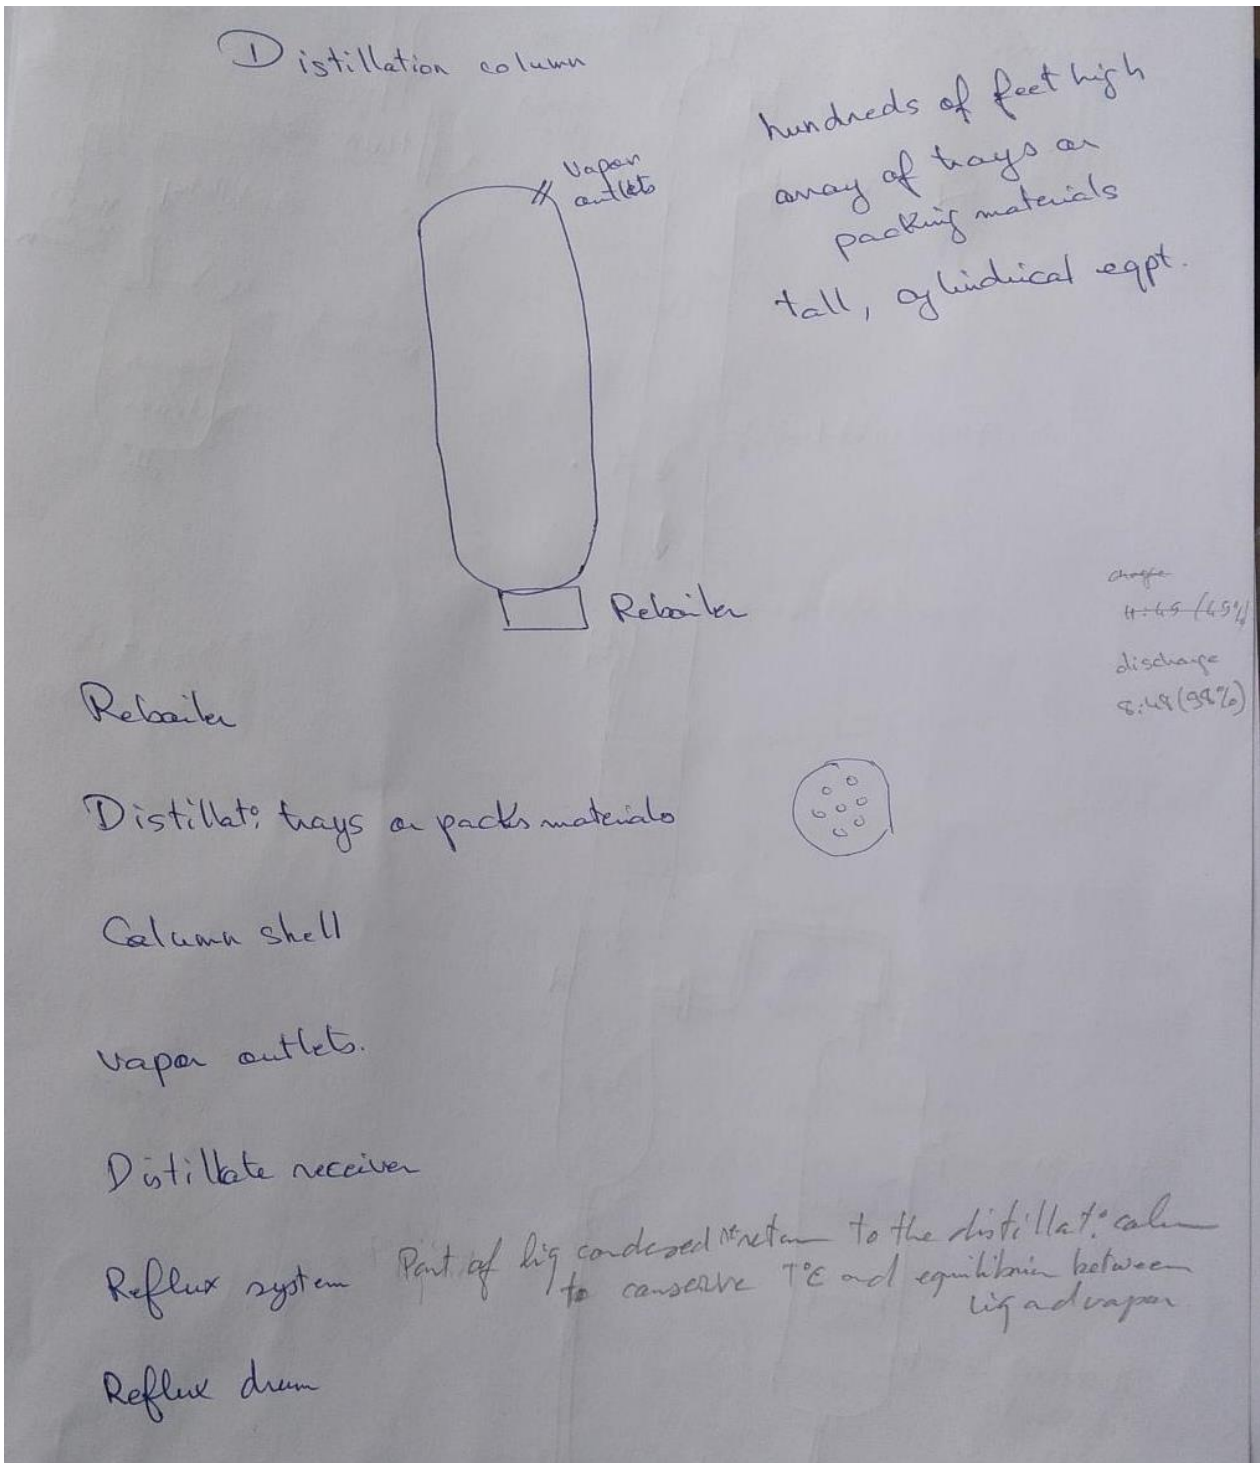 Distillation column
hundreds of feet high
array of trays or
packing materials
tall, cylindrical eqpt.
Vapor
outlets
Reboiler
charge
discharge
8:48 (98%)
Reboiler
Distillat° trays or packs materials
Column shell
Vapor outlets.
Distillate receiver
Reflux system Part of liq condensed return to the distillat° colum
to conserve T°C and equilibrium between
liq and vapor
Reflux drum